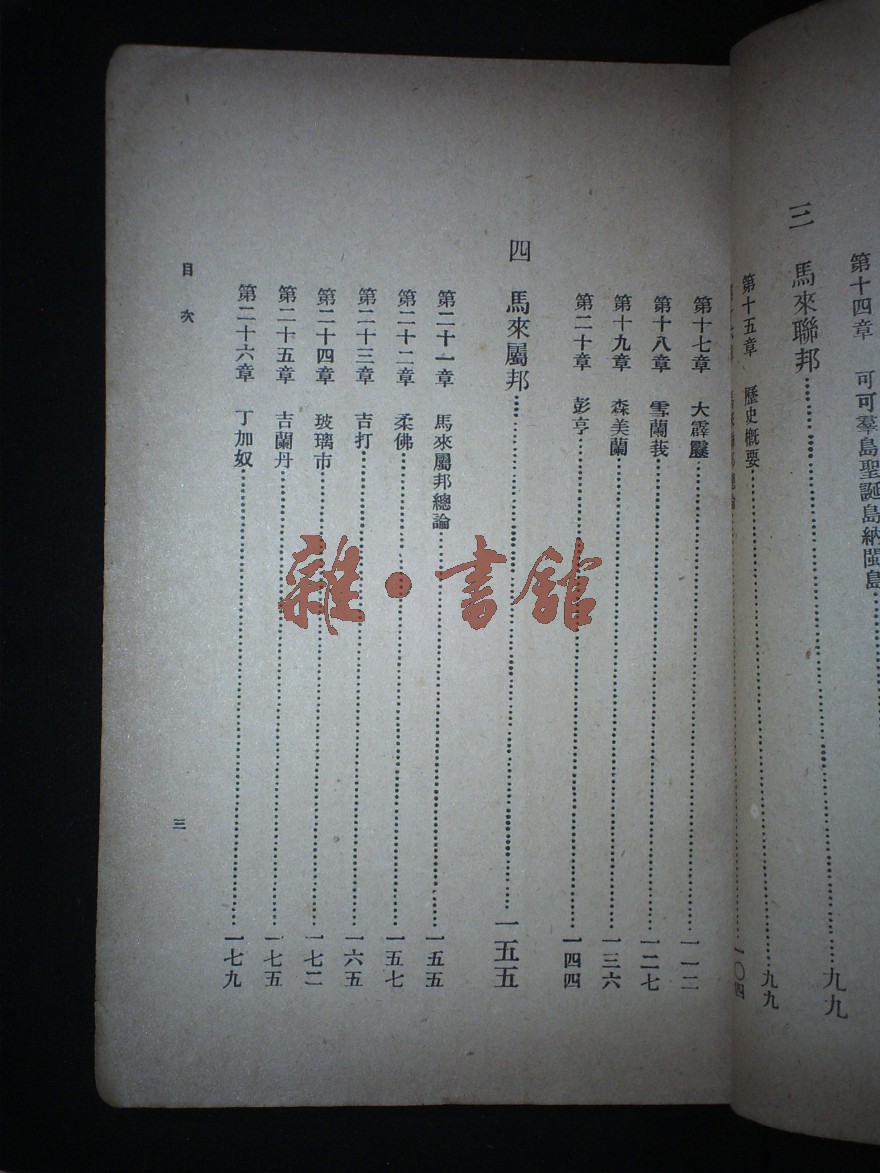 第十四章　可可羣島聖誕島納閩島
三　馬來聯邦 九九
第十五章　歷史概要 九九
一〇四
第十七章　大霹靂 一一二
第十八章　雪蘭莪 一二七
第十九章　森美蘭 一三六
第二十章　彭亨 一四四
四　馬來屬邦 一五五
第二十一章　馬來屬邦總論 一五五
第二十二章　柔佛 一五七
第二十三章　吉打 一六五
第二十四章　玻璃市 一七二
第二十五章　吉蘭丹 一七五
第二十六章　丁加奴 一七九
目次
三
雜·書館